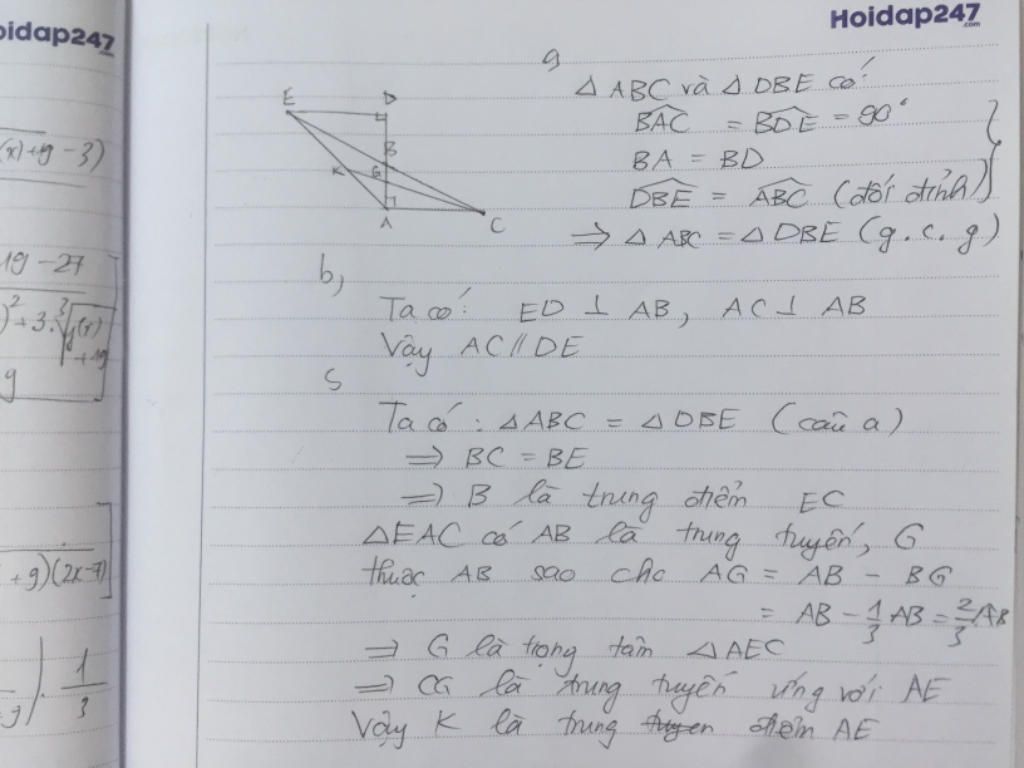 oidap247
.com
Hoidap247
.com
(x)+9-3)
19-27
)²+3.∛g(x)
+19
9
+9)(2x-7)
). 1/3
a
E D
B
K G
A C
△ABC và △DBE có:
BAC = BDE = 90°
BA = BD
DBE = ABC (đối đỉnh)
⇒ △ABC = △DBE (g.c.g)
b,
Ta có: ED ⊥ AB, AC ⊥ AB
Vậy AC // DE
c
Ta có: △ABC = △DBE (câu a)
⇒ BC = BE
⇒ B là trung điểm EC
△EAC có AB là trung tuyến, G
thuộc AB sao cho AG = AB - BG
= AB - 1/3 AB = 2/3 AB
⇒ G là trọng tâm △AEC
⇒ CG là trung tuyến ứng với AE
Vậy K là trung điểm AE